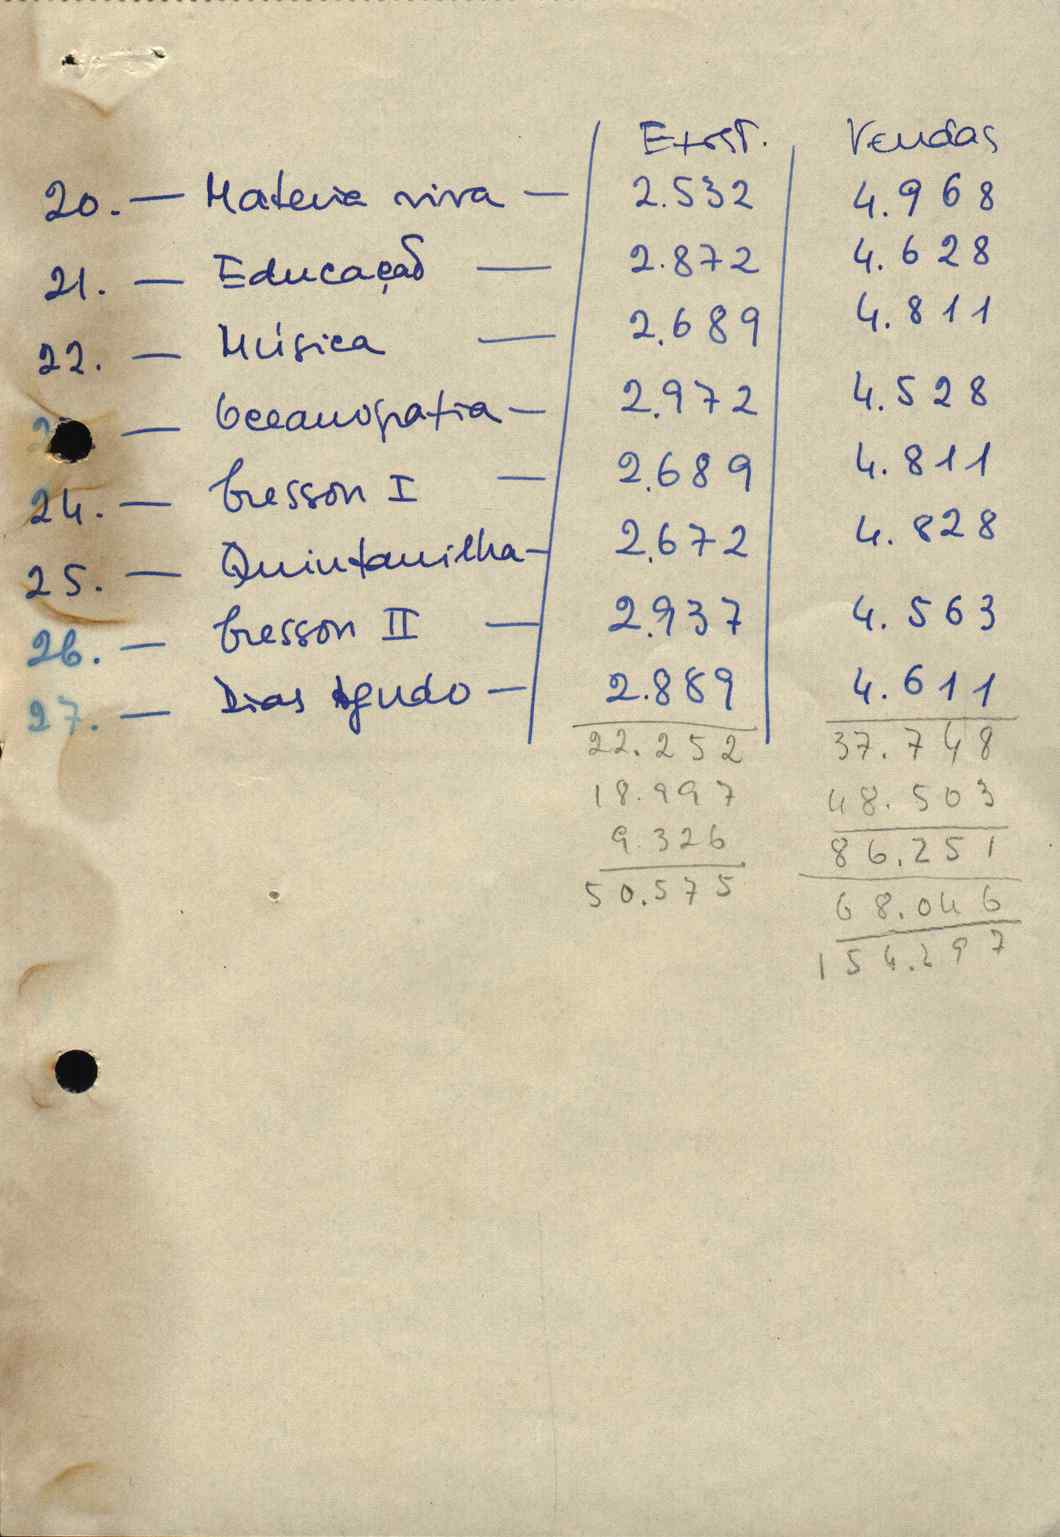 Exist. Vendas
20. — Materia viva — 2.532 4.968
21. — Educação — 2.872 4.628
22. — Música — 2.689 4.811
2 — Oceanografia — 2.972 4.528
24. — Cresson I — 2.689 4.811
25. — Quintanilha — 2.672 4.828
26. — Cresson II — 2.937 4.563
27. — Dias Agudo — 2.889 4.611
22.252 37.748
18.997 48.503
9.326 86.251
50.575 68.046
154.297